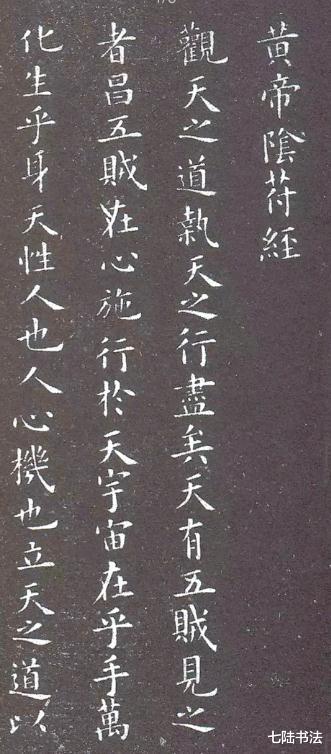 黃帝陰苻經
觀天之道執天之行盡矣天有五賊見之
者昌五賊在心施行於天宇宙在乎手萬
化生乎身天性人也人心機也立天之道以
七陆书法